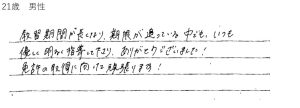 21歳 男性
教習期間が長くなり、期限が迫っている中でも、いつも
優しく明るく指導して下さり、ありがとうございました！
免許の取得に向けて頑張ります！